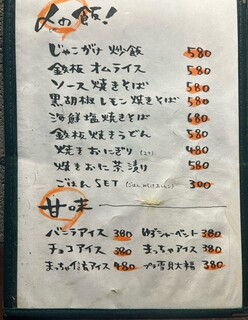 〆の飯!
じゃこガリ炒飯 580
鉄板オムライス 580
ソース焼きそば 580
黒胡椒レモン焼きそば 580
海鮮塩焼きそば 680
鉄板焼きうどん 580
焼きおにぎり 480
焼きおに茶漬け 580
ごはんSET 300
甘味
バニラアイス 380 ゆずシャーベット 380
チョコアイス 380 まっちゃアイス 380
380